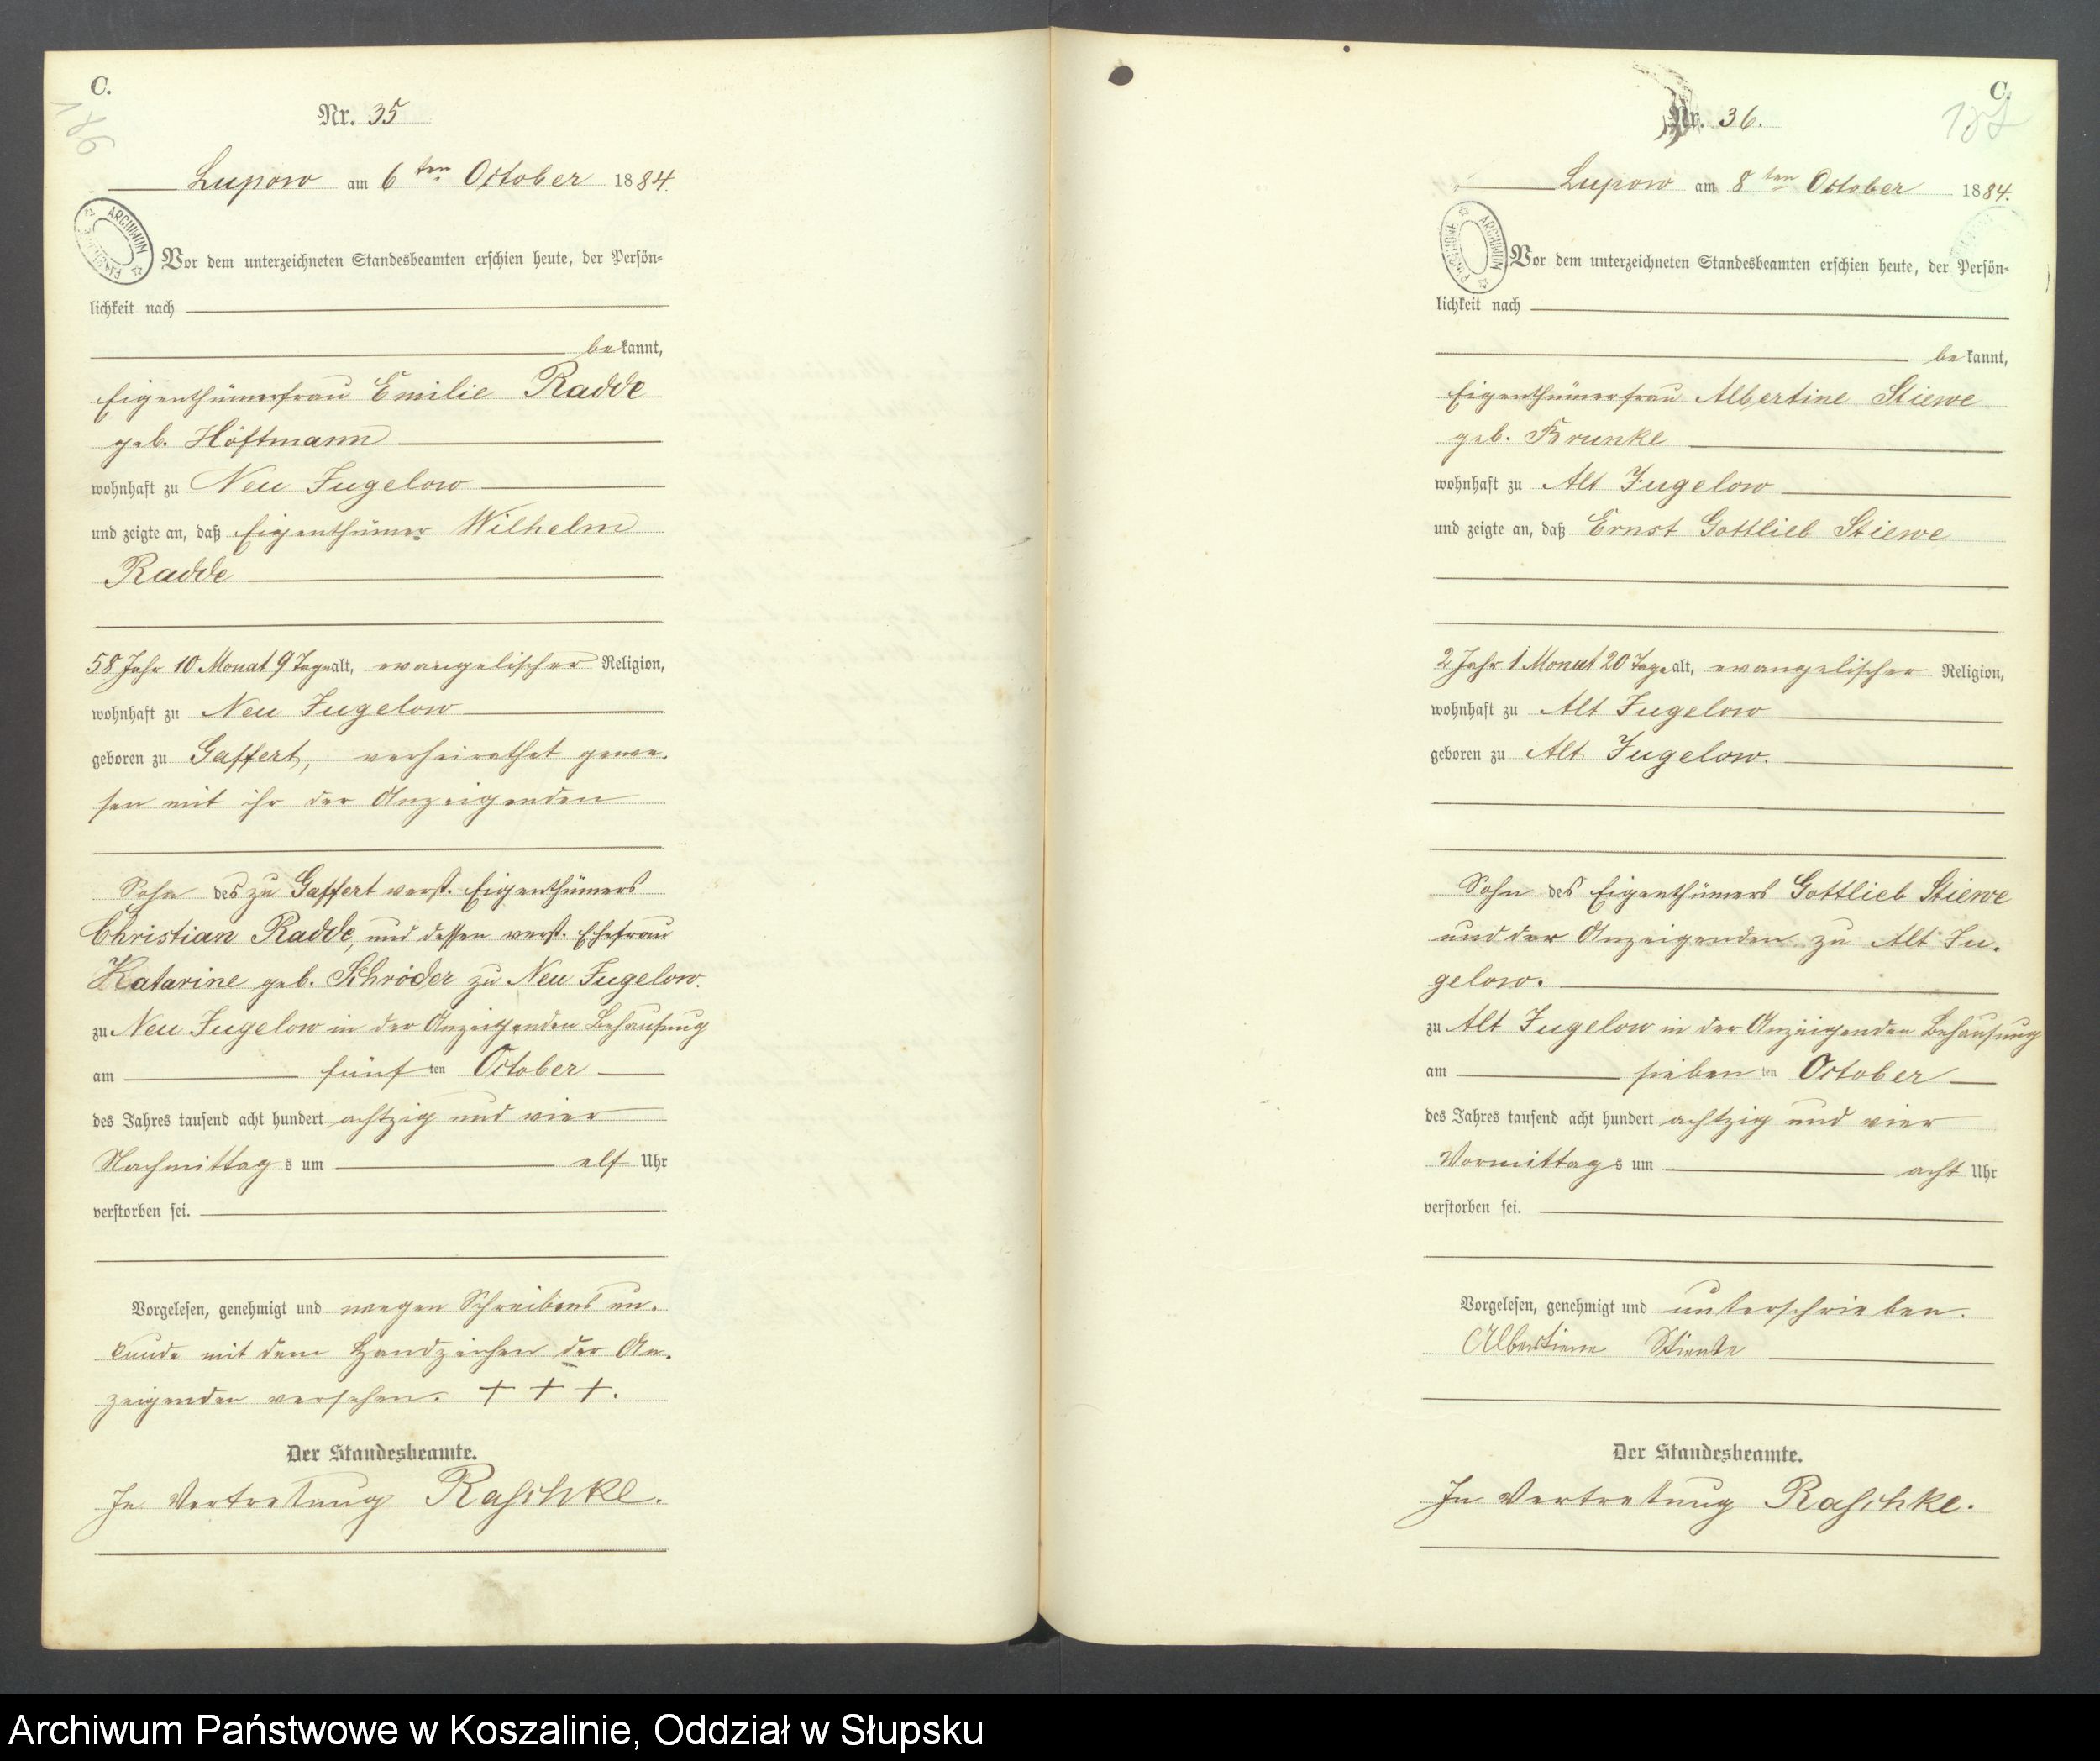 C.
176
Nr. 35
Lupow am 6ten October 1884.
ARCHIWUM
Vor dem unterzeichneten Standesbeamten erschien heute, der Persön=
lichkeit nach
bekannt,
Eigenthümerfrau Emilie Radde
geb. Höftmann
wohnhaft zu Neu Jugelow
und zeigte an, daß Eigenthümer Wilhelm
Radde
58 Jahr 10 Monat 9 Tage alt, evangelischer Religion,
wohnhaft zu Neu Jugelow
geboren zu Gaffert, verheirathet gewe-
sen mit ihr der Anzeigenden
Sohn des zu Gaffert verst. Eigenthümers
Christian Radde, und dessen verst. Ehefrau
Katarine geb. Schröder zu Neu Jugelow.
zu Neu Jugelow in der Anzeigenden Behausung
am fünften October
des Jahres tausend acht hundert achtzig und vier
Nachmittags um elf Uhr
verstorben sei.
Vorgelesen, genehmigt und wegen Schreibens un-
kunde mit dem Handzeichen der An-
zeigenden versehen. + + +.
Der Standesbeamte.
In Vertretung Raschke.
C.
Nr. 36.
Lupow am 8ten October 1884.
ARCHIWUM
Vor dem unterzeichneten Standesbeamten erschien heute, der Persön=
lichkeit nach
bekannt,
Eigenthümerfrau Albertine Stiewe
geb. Brunke
wohnhaft zu Alt Jugelow
und zeigte an, daß Ernst Gottlieb Stiewe
2 Jahr 1 Monat 20 Tage alt, evangelischer Religion,
wohnhaft zu Alt Jugelow
geboren zu Alt Jugelow.
Sohn des Eigenthümers Gottlieb Stiewe
und der Anzeigenden zu Alt Ju-
gelow.
zu Alt Jugelow in der Anzeigenden Behausung
am siebenten October
des Jahres tausend acht hundert achtzig und vier
Vormittags um acht Uhr
verstorben sei.
Vorgelesen, genehmigt und unterschrieben.
Der Standesbeamte.
In Vertretung Raschke.
Archiwum Państwowe w Koszalinie, Oddział w Słupsku